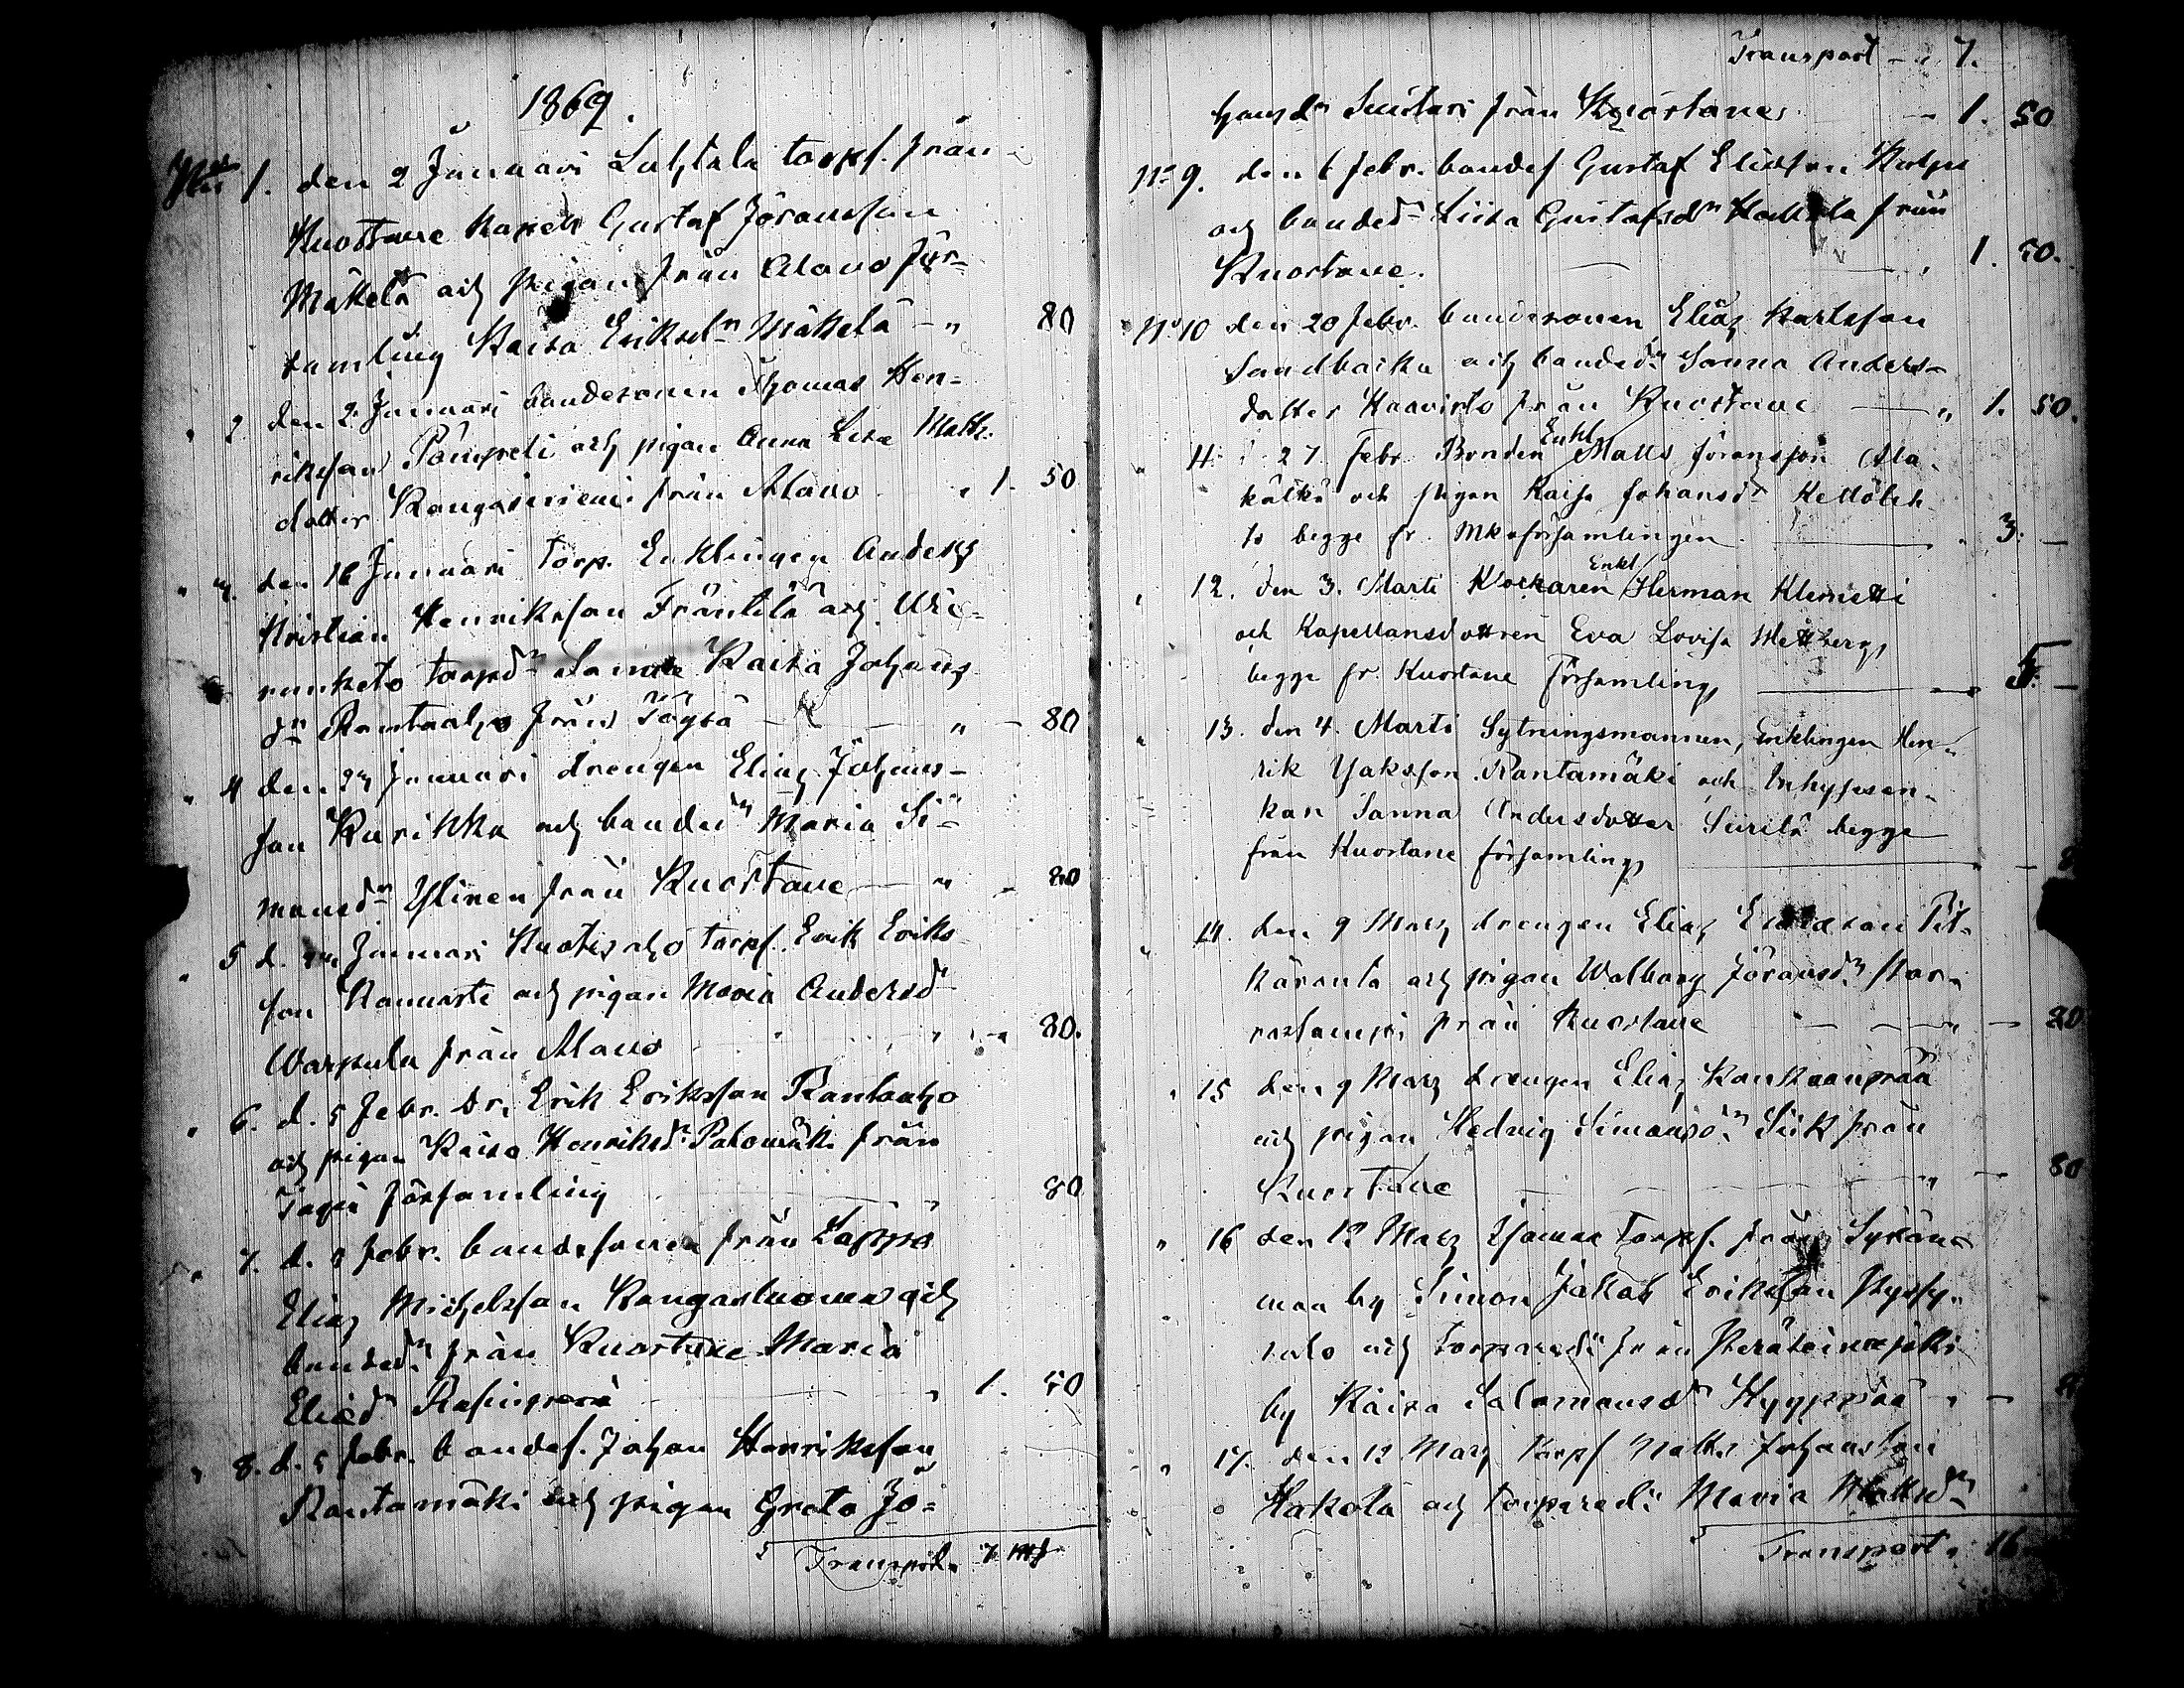 1869.
N:o 1. den 2 Januari Luhtala torps. från
Kuortane Kapells Gustaf Jöransson
Mäkelä och pigan från Alavo för-
samling Kaisa Eriksdr Mäkelä - " 80
" 2. den 2 Januari bondesonen Thomas Hen-
riksson Pömpeli och pigan Anna Lisa Matts-
dotter Kangasniemi från Alavo " 1. 50
" 3. den 16 Januari torp. Enklingen Anders
Kristian Henriksson Fräntilä och
torpdr Sanna Kaisa Johans
dr Rantaalho från Töysä - " - 80
" 4 den Januari drengen Elias Johans-
son Kurikka och bondedr Maria Si-
monsdr Ylinen från Kuortane - " - 80
" 5 d. Januari torps. Erik Eriks-
son och pigan Maria Andersdr
Warpula från Alavo " - 80.
" 6. d. 5 Febr. Dr. Erik Eriksson Rantaalho
och pigan Kaisa Henriksdr Palomäki från
Töysä församling " 80
" 7. d. 5 Febr. bondesonen från Lappo
Elias Michelsson Kangasluoma och
bondedr från Kuortane Maria
Eliædr " 1. 50
" 8. d. 5 febr. bondes. Johan Henriksson
Rantamäki och pigan Greta Jo-
Transport. 7
Transport - " 7.
hansdr Suutari från Kuortane - 1. 50
No 9. den 6 febr. bondes Gustaf Eliasson
och bondedr Liisa Gustafsdr från
Kuortane. - 1. 50.
No 10 den 20 Febr. bondesonen Elias Karlsson
Sandbacka och bondedr Sanna Anders-
dotter Haavisto från Kuortane - " 1. 50.
" 11. d 27 Febr. Bonden Enkl Matts Jöransson Ala-
kälkä och pigan Kaisa Johansdr Kellöleh-
to begge fr. Mkaförsamlingen. - " 3. -
" 12. den 3. Marti Klockaren Enkl Herman Klemetti
och Kapellansdottren Eva Lovisa Wettberg,
begge fr. Kuortane Församling, - " 5. -
" 13. den 4. Marti Sytningsmannen, Enklingen Hen-
rik Jaksson Rantamäki och Inhyssen-
kan Sanna Andersdotter Surilä begge
från Kuortane församling, - - 8
" 14. den 9 Mars drengen Elias
och pigan Walborg Jöransdr
från Kuortane - " - 80
" 15 den 9 Mars drengen Elias Kankaanpää
och pigan Hedvig Simonsdr Siik från
Kuortane - " - 80
" 16 den 12 Mars torps. från
by Simon Jakob Eriksson
och från Peräseinäjoki
by Kaisa Salomonsdr Hyyppää " -
" 17. den 12 Mars torps Matts Johansson
Hakola och torparedr Maria Mattsdr
Transport. 16